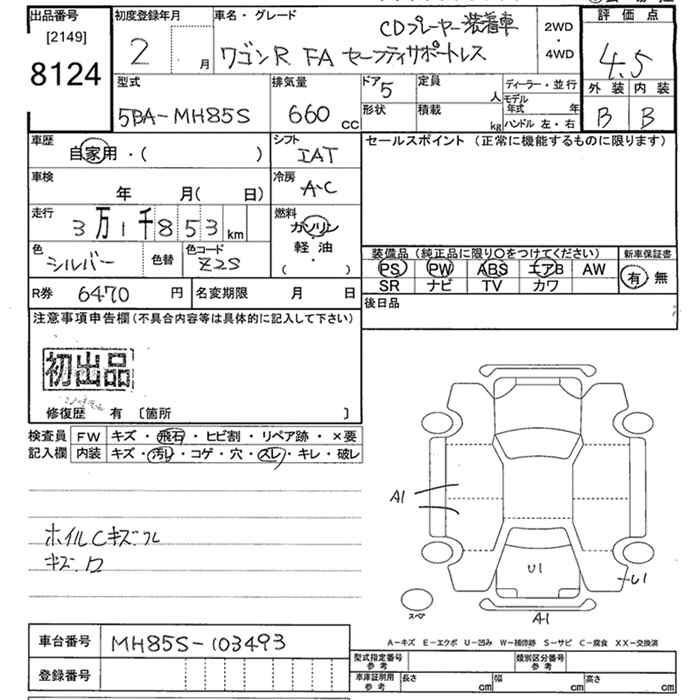 出品番号
[2149]
8124
初度登録年月
2 月
車名・グレード
CDプレーヤー装着車
ワゴンR FA セーフティサポートレス
2WD
・
4WD
評価点
4.5
外装 内装
B B
型式
5BA-MH85S
排気量
660 cc
ドア 5
形状
定員 人
積載 kg
ディーラー・並行
モデル年式 年
ハンドル 左・右
車歴
自家用・( )
シフト
IAT
セールスポイント (正常に機能するものに限ります)
車検
年 月( 日)
冷房
A-C
走行
3万1千853km
燃料
ガソリン
軽油
( ・ )
色
シルバー
色替
色コード
Z2S
装備品(純正品に限り○をつけてください)
新車保証書
PS PW ABS エアB AW
SR ナビ TV カワ
有・無
R券 6470 円
名変期限 月 日
後日品
注意事項申告欄(不具合内容等は具体的に記入して下さい)
初出品
修復歴 有 〔箇所 〕
検査員 記入欄
FW キズ・飛石・ヒビ割・リペア跡・×要
内装 キズ・汚れ・コゲ・穴・スレ・キレ・破レ
ホイルCキズフル
キズ.ロ
A1
U1
U1
スペア
A1
A-キズ E-エクボ U-凹み W-補修跡 S-サビ C-腐食 XX-交換済
車台番号 MH85S-103493
登録番号
型式指定番号 参考
類別区分番号 参考
車庫証明用 参考
長さ cm 幅 cm 高さ cm